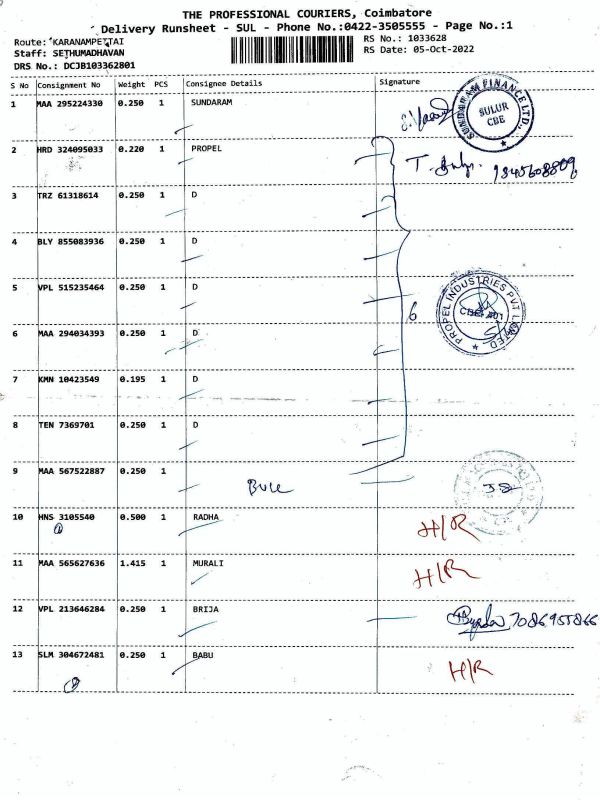 THE PROFESSIONAL COURIERS, Coimbatore
Delivery Runsheet - SUL - Phone No.:0422-3505555 - Page No.:1
Route: KARANAMPETTAI
Staff: SETHUMADHAVAN
DRS No.: DCJB103362801
RS No.: 1033628
RS Date: 05-Oct-2022
S No Consignment No Weight PCS Consignee Details Signature
1 MAA 295224330 0.250 1 SUNDARAM
SUNDARAM FINANCE LTD.,
SULUR
CBE
2 HRD 324095033 0.220 1 PROPEL
3 TRZ 61318614 0.250 1 D
4 BLY 855083936 0.250 1 D
5 VPL 515235464 0.250 1 D
6
PROPEL INDUSTRIES PVT LIMITED
6 MAA 294034393 0.250 1 D
7 KMN 10423549 0.195 1 D
8 TEN 7369701 0.250 1 D
9 MAA 567522887 0.250 1
10 HNS 3105540 0.500 1 RADHA H/R
11 MAA 565627636 1.415 1 MURALI H/R
12 VPL 213646284 0.250 1 BRIJA 7086955866
13 SLM 304672481 0.250 1 BABU H/R